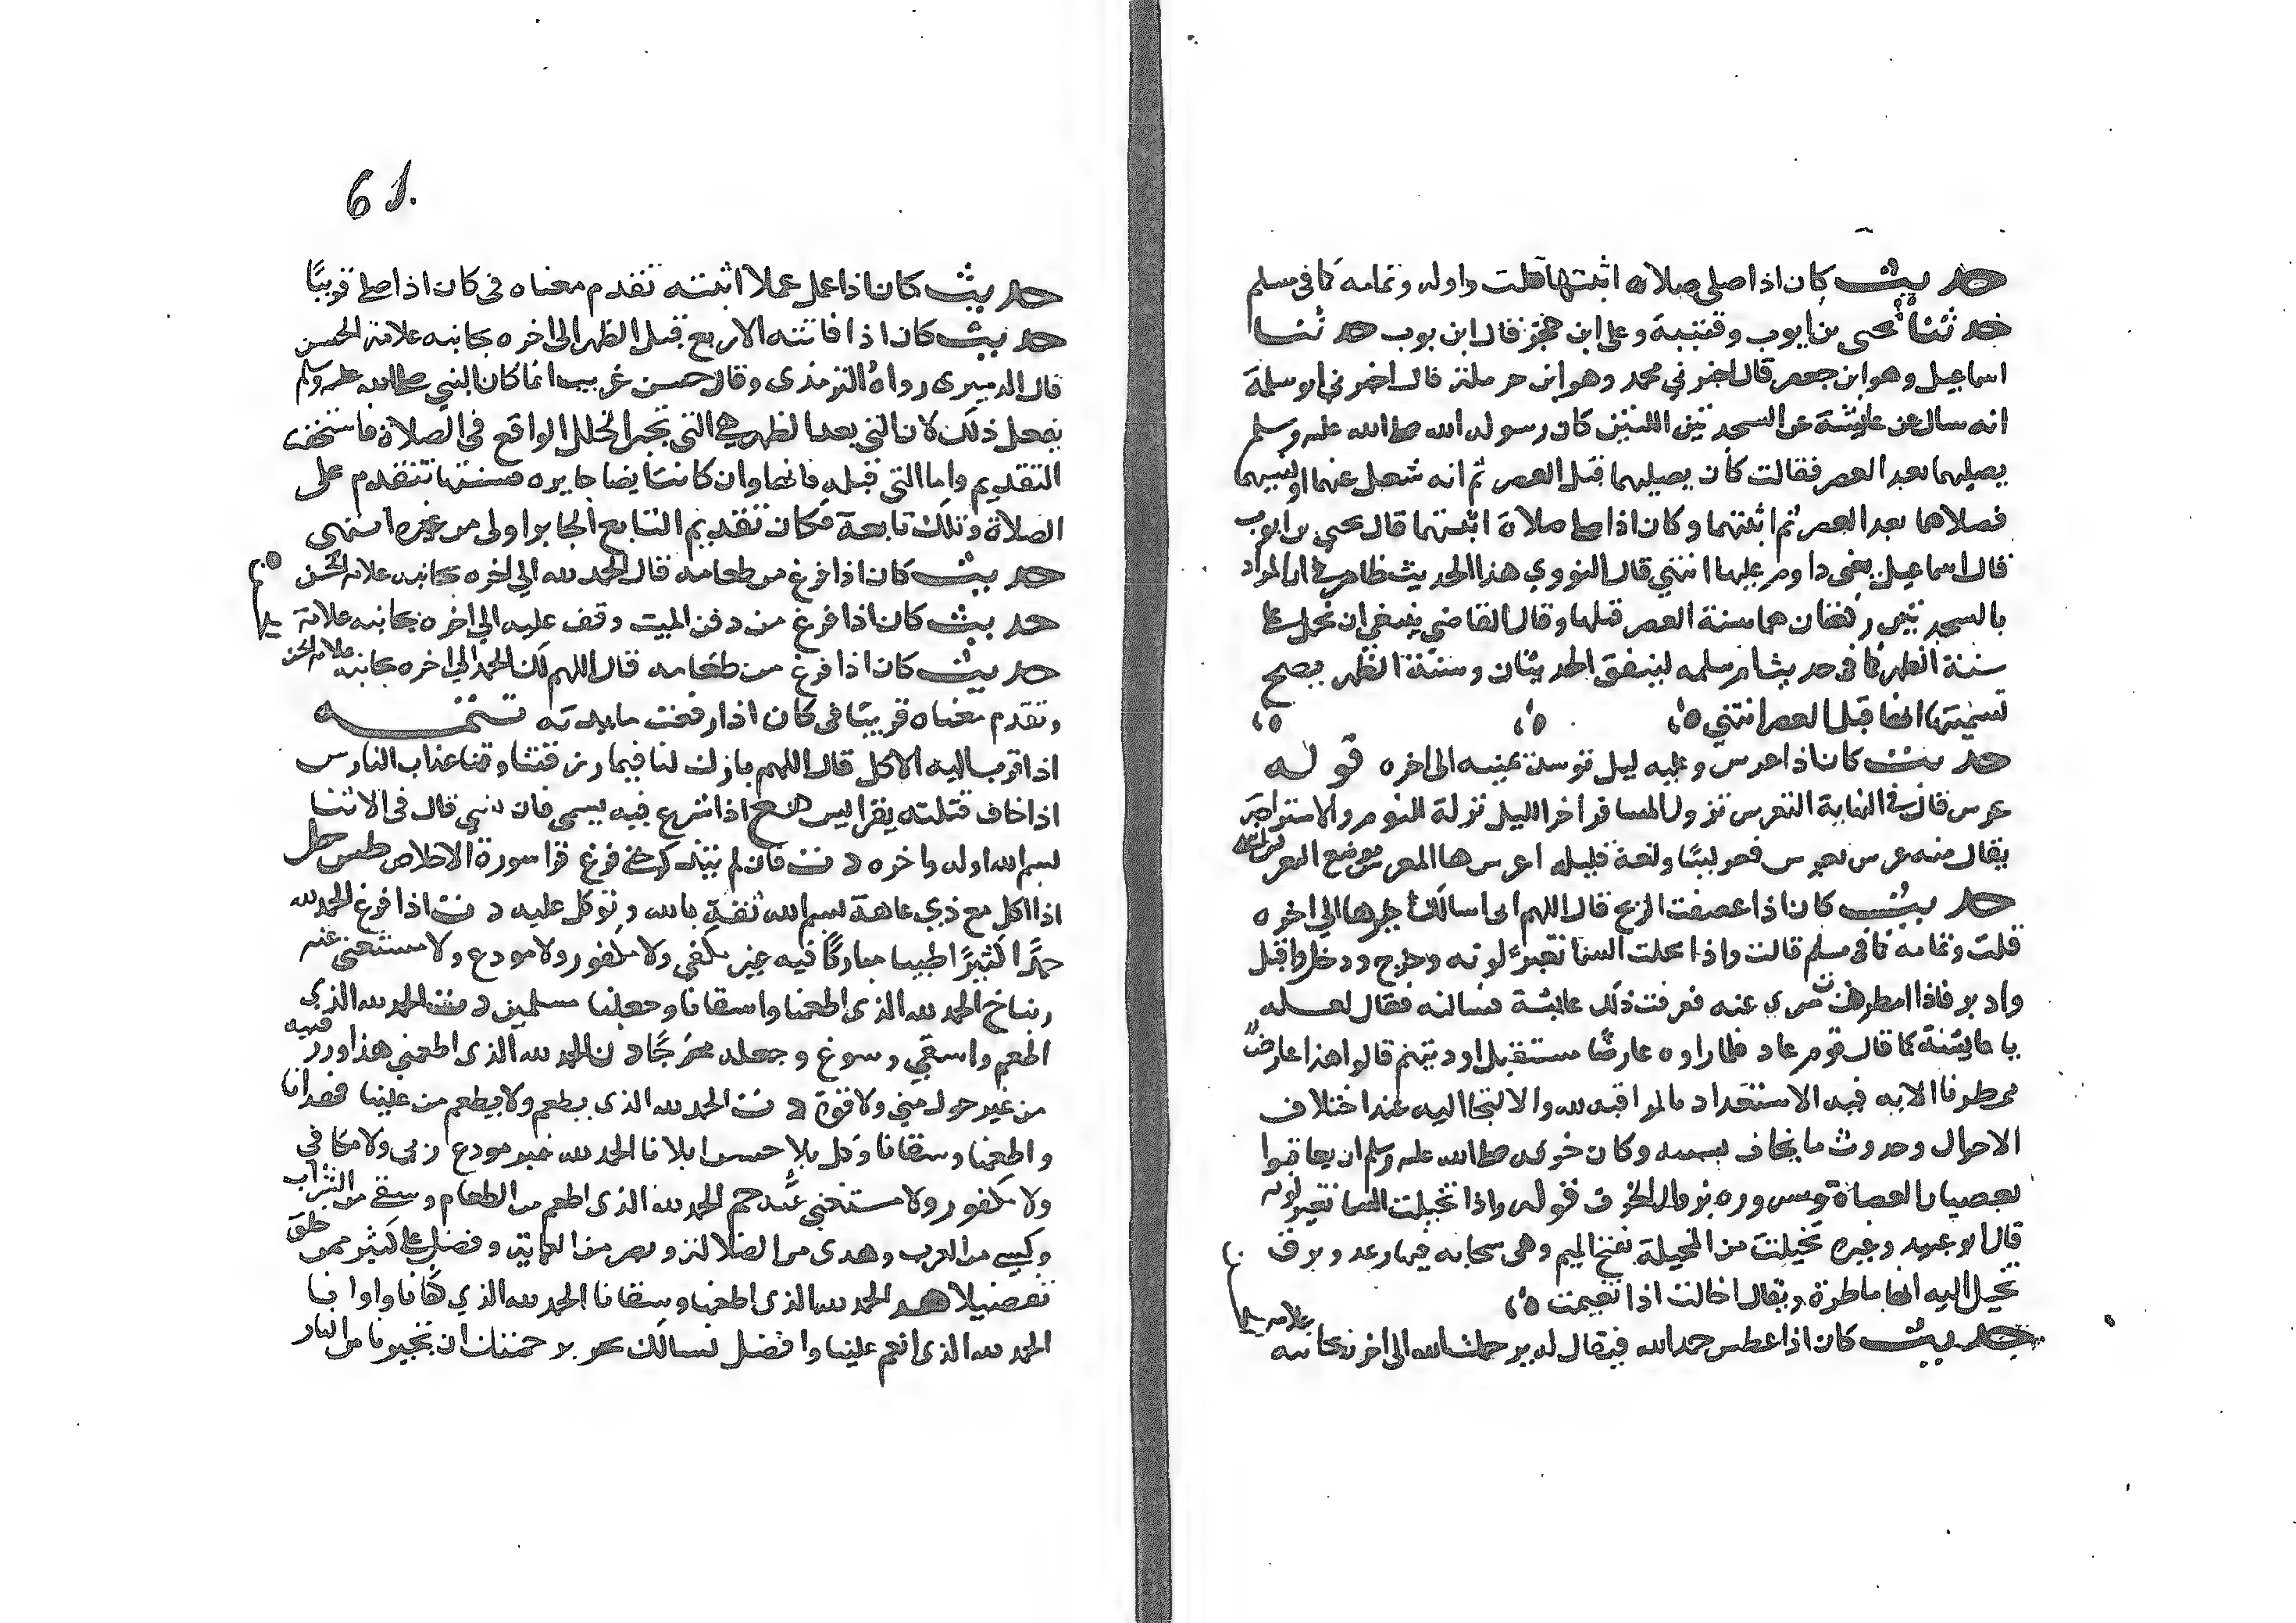 حديث كان اذا صلى صلاة اثبتها قلت واوله وتمامه كما فى مسلم
حدثنا يحيى بن ايوب وقتيبة وعلى ابن حجر قال ابن يوب حدثنا
اسماعيل وهو ابن جعفر قال اخبرني محمد وهو ابن حرملة قال اخبرني ابو سلمة
انه سال عن عايشة عن السجدتين اللتين كان رسول الله صلى الله عليه وسلم
يصليهما بعد العصر فقالت كان يصليهما قبل العصر ثم انه شغل عنهما او نسيهما
فصلاهما بعد العصر ثم اثبتهما وكان اذا صلى صلاة اثبتها قال يحيى بن ايوب
قال اسماعيل يعنى داوم عليها انتهي قال النووي هذا الحديث ظاهر في ان المراد
بالسجدتين ركعتان هما سنة العصر قبلها وقال القاضى ينبغي ان تحمل على
سنة الظهر كما فى حديث ام سلمه ليتفق الحديثان وسنة الظهر يصح
تسميتها انها قبل العصر انتهي
حديث كان اذا عرس وعليه ليل توسد يمينه الى اخره قوله
عرس قال في النهاية التعرس نزول المسافر اخر الليل نزلة للنوم والاستراحة
يقال منه عرس يعرس تعريسا ولغة قليله اعرس والمعرس موضع التعريس
حديث كان اذا عصفت الريح قال اللهم انى اسالك خيرها الي اخره
قلت وتمامه كما فى مسلم قالت واذا تخيلت السما تغير لونه وخرج ودخل واقبل
وادبر فاذا امطرت سرى عنه فعرفت ذلك عايشة فسالته فقال لعله
يا عايشة كما قال قوم عاد فلما راوه عارضًا مستقبل اوديتهم قالوا هذا عارض
ممطرنا الايه فيه الاستعداد بالمراقبه لله والالتجا اليه عند اختلاف
الاحوال وحدوث ما يخاف بسببه وكان خوفه صلى الله عليه وسلم ان يعاقبوا
بعصيان العصاة وسروره بزوال الخوف قوله واذا تخيلت السما تغير لونه
قال ابو عبيد وغيره تخيلت من المخيلة بفتح الميم وهى سحابه فيها رعد وبرق
تخيل اليه انها ماطرة ويقال اخالت اذا تغيمت
حديث كان اذا عطس حمد الله فيقال له يرحمك الله الى اخره بجانبه علامة
61.
حديث كان اذا عمل عملا اثبته تقدم معناه فى كان اذا صلى قريبًا
حديث كان اذا فاتته الاربع قبل الظهر الى اخره بجانبه علامة الحسن
قال الدميرى رواه الترمذى وقال حسن غريب انما كان النبي صلى الله عليه وسلم
يفعل ذلك لان التي بعد الظهر هي التى تجبر الخلل الواقع فى الصلاة فاستحقت
التقديم واما التى قبله فانها وان كانت ايضا جابره فسنتها تتقدم على
الصلاة وتلك تابعة فكان تقديم التابع الجابر اولى من غيره انتهى
حديث كان اذا فرغ من طعامه قال الحمد لله الي اخره بجانبه علامة الحسن
حديث كان اذا فرغ من دفن الميت وقف عليه الي اخره بجانبه علامة
حديث كان اذا فرغ من طعامه قال اللهم لك الحمد الي اخره بجانبه علامة الحسن
وتقدم معناه قريبًا فى كان اذا رفعت مايدته تتمه
اذا قرب اليه الاكل قال اللهم بارك لنا فيما رزقتنا وقنا عذاب النار
اذا خاف قتلته يقرا يس اذا شرع فيه يسمى فان نسي قال فى الاثنا
بسم الله اوله واخره د ت فان لم حتى فرغ قرا سورة الاخلاص طس
اذا اكل مع ذي عاهة بسم الله ثقة بالله وتوكل عليه د ت اذا فرغ الحمد لله
حمدًا كثيرًا طيبا مباركًا فيه غير مكفي ولا مكفور ولا مودع ولا مستغنى عنه
ربنا خ الحمد لله الذى اطعمنا واسقانا وجعلنا مسلمين د ت الحمد لله الذي
اطعم واسقي وسوغ وجعله مخرجًا د ن الحمد لله الذى اطعمني هذا ورزقنيه
من غير حول مني ولا قوة د ت الحمد لله الذى يطعم ولا يطعم من علينا فهدانا
واطعمنا وسقانا وكل بلا حسن ابلانا الحمد لله غير مودع ربي ولا مكافي
ولا مكفور ولا مستغني عنه الحمد لله الذى اطعم من الطعام وسقى من الشراب
وكسي من العرى وهدى من الضلالة وبصر من العماية وفضل على كثير ممن خلق
تفضيلا الحمد لله الذى اطعمنا وسقانا الحمد لله الذي كفانا واوانا
الحمد لله الذى انعم علينا وافضل نسالك برحمتك ان تجيرنا من النار